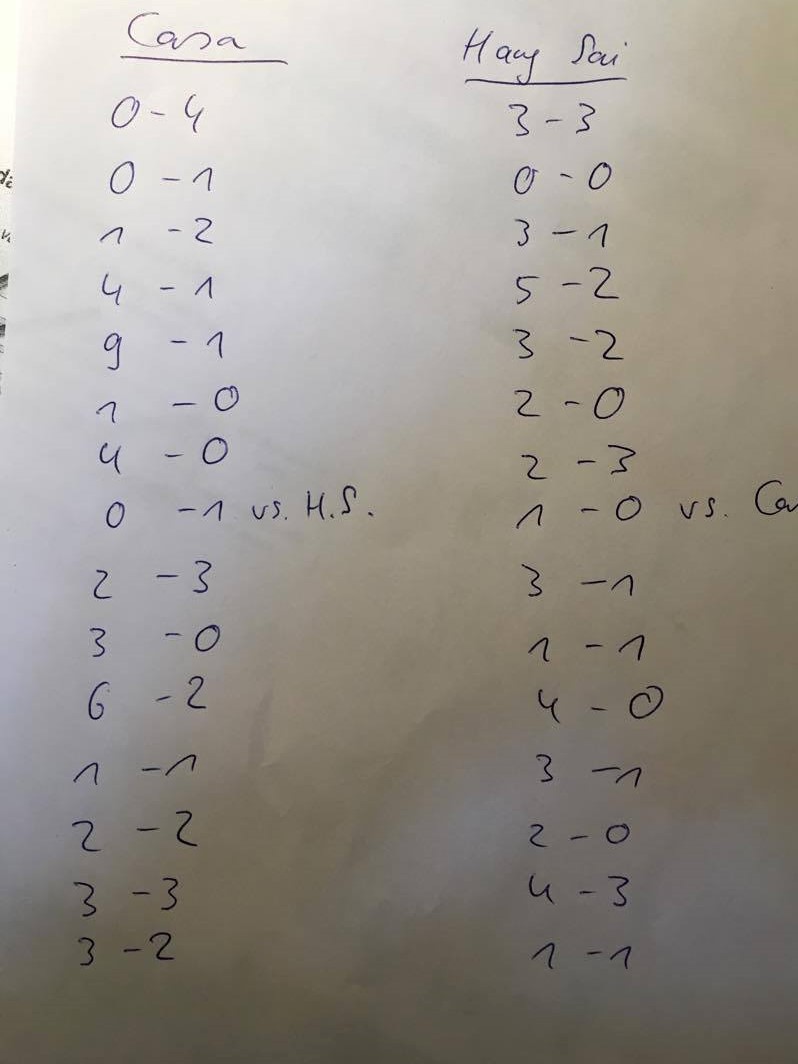 Casa Hang Sai
0-4 3-3
0-1 0-0
1-2 3-1
4-1 5-2
9-1 3-2
1-0 2-0
4-0 2-3
0-1 vs. H.S. 1-0 vs. Ca
2-3 3-1
3-0 1-1
6-2 4-0
1-1 3-1
2-2 2-0
3-3 4-3
3-2 1-1